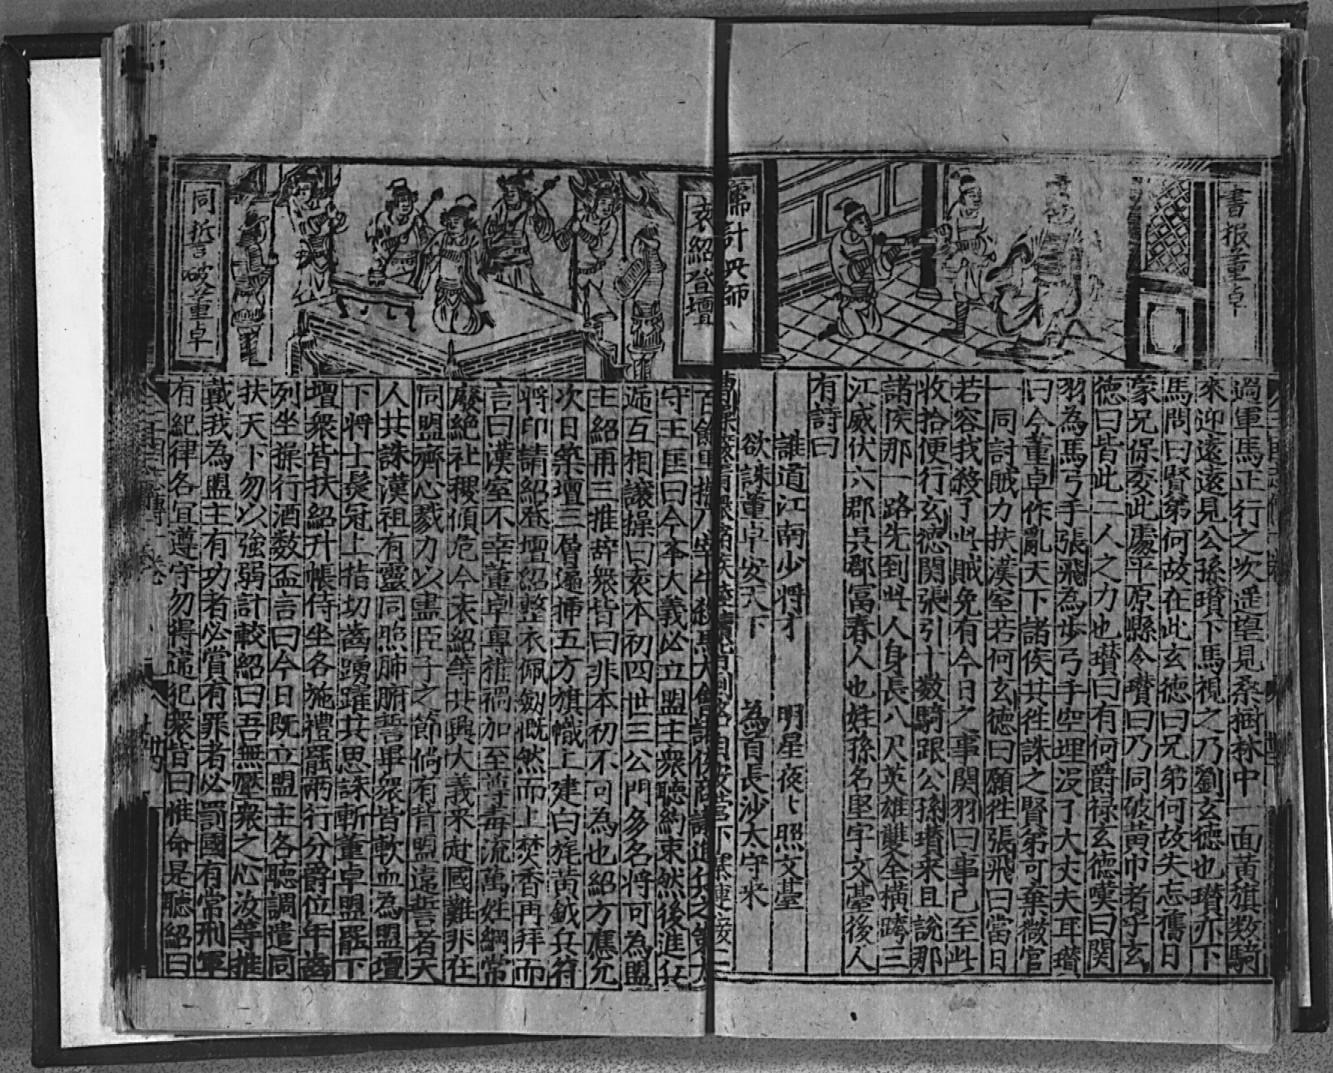 書报董卓
儒計兴師
過軍馬正行之次遥望見桑樹林中一面黄旗数騎
來迎遠遠見公孫瓚下馬視之乃劉玄德也瓚亦下
馬問曰賢弟何故在此玄德曰兄弟何故失忘舊日
蒙兄保委此處平原縣令瓚曰乃同破黄巾者乎玄
德曰皆此二人之力也瓚曰有何爵禄玄德嘆曰関
羽為馬弓手張飛為歩弓手空埋没了大丈夫耳瓚
曰今董卓作亂天下諸侯共徃誅之賢弟可棄微官
一同討賊力扶漢室若何玄德曰願徃張飛曰當日
若容我殺了此賊免有今日之事関羽曰事已至此
收拾便行玄德関張引十数騎跟公孫瓚来且說那
諸侯那一路先到此人身長八尺英雄雙全横跨三
江威伏六郡吳郡富春人也姓孫名堅字文臺後人
有詩曰
誰道江南少将才 明星夜〻照文臺
欲誅董卓安天下 為首長沙太守来
袁紹登壇
同誓破董卓
守王匡曰今奉大義必立盟主衆聽約束然後進兵
遞互相讓操曰袁本初四世三公門多名将可為盟
主紹再三推辞衆皆曰非本初不可為也紹方應允
次日築壇三層遍挿五方旗幟上建白旄黄鉞兵符
将印請紹登壇紹整衣佩劔慨然而上焚香再拜而
言曰漢室不幸董卓專權禍加至尊毒流萬姓綱常
廢絶社稷傾危今袁紹等共興大義來赴國難非在
同盟齊心戮力以盡臣子之節倘有背盟違誓者天
人共誅漢祖有靈同照肺腑誓畢衆皆軟血為盟壇
下将士髮冠上指切齒踴躍共思誅斬董卓盟罷下
壇衆皆扶紹升帳侍坐各施禮罷兩行分爵位年齒
列坐操行酒数盃言曰今日既立盟主各聽調遣同
扶天下勿以強弱計較紹曰吾無壓衆之心汝等推
戴我為盟主有功者必賞有罪者必罰國有常刑軍
有紀律各宜遵守勿得違犯衆皆曰惟命是聽紹曰